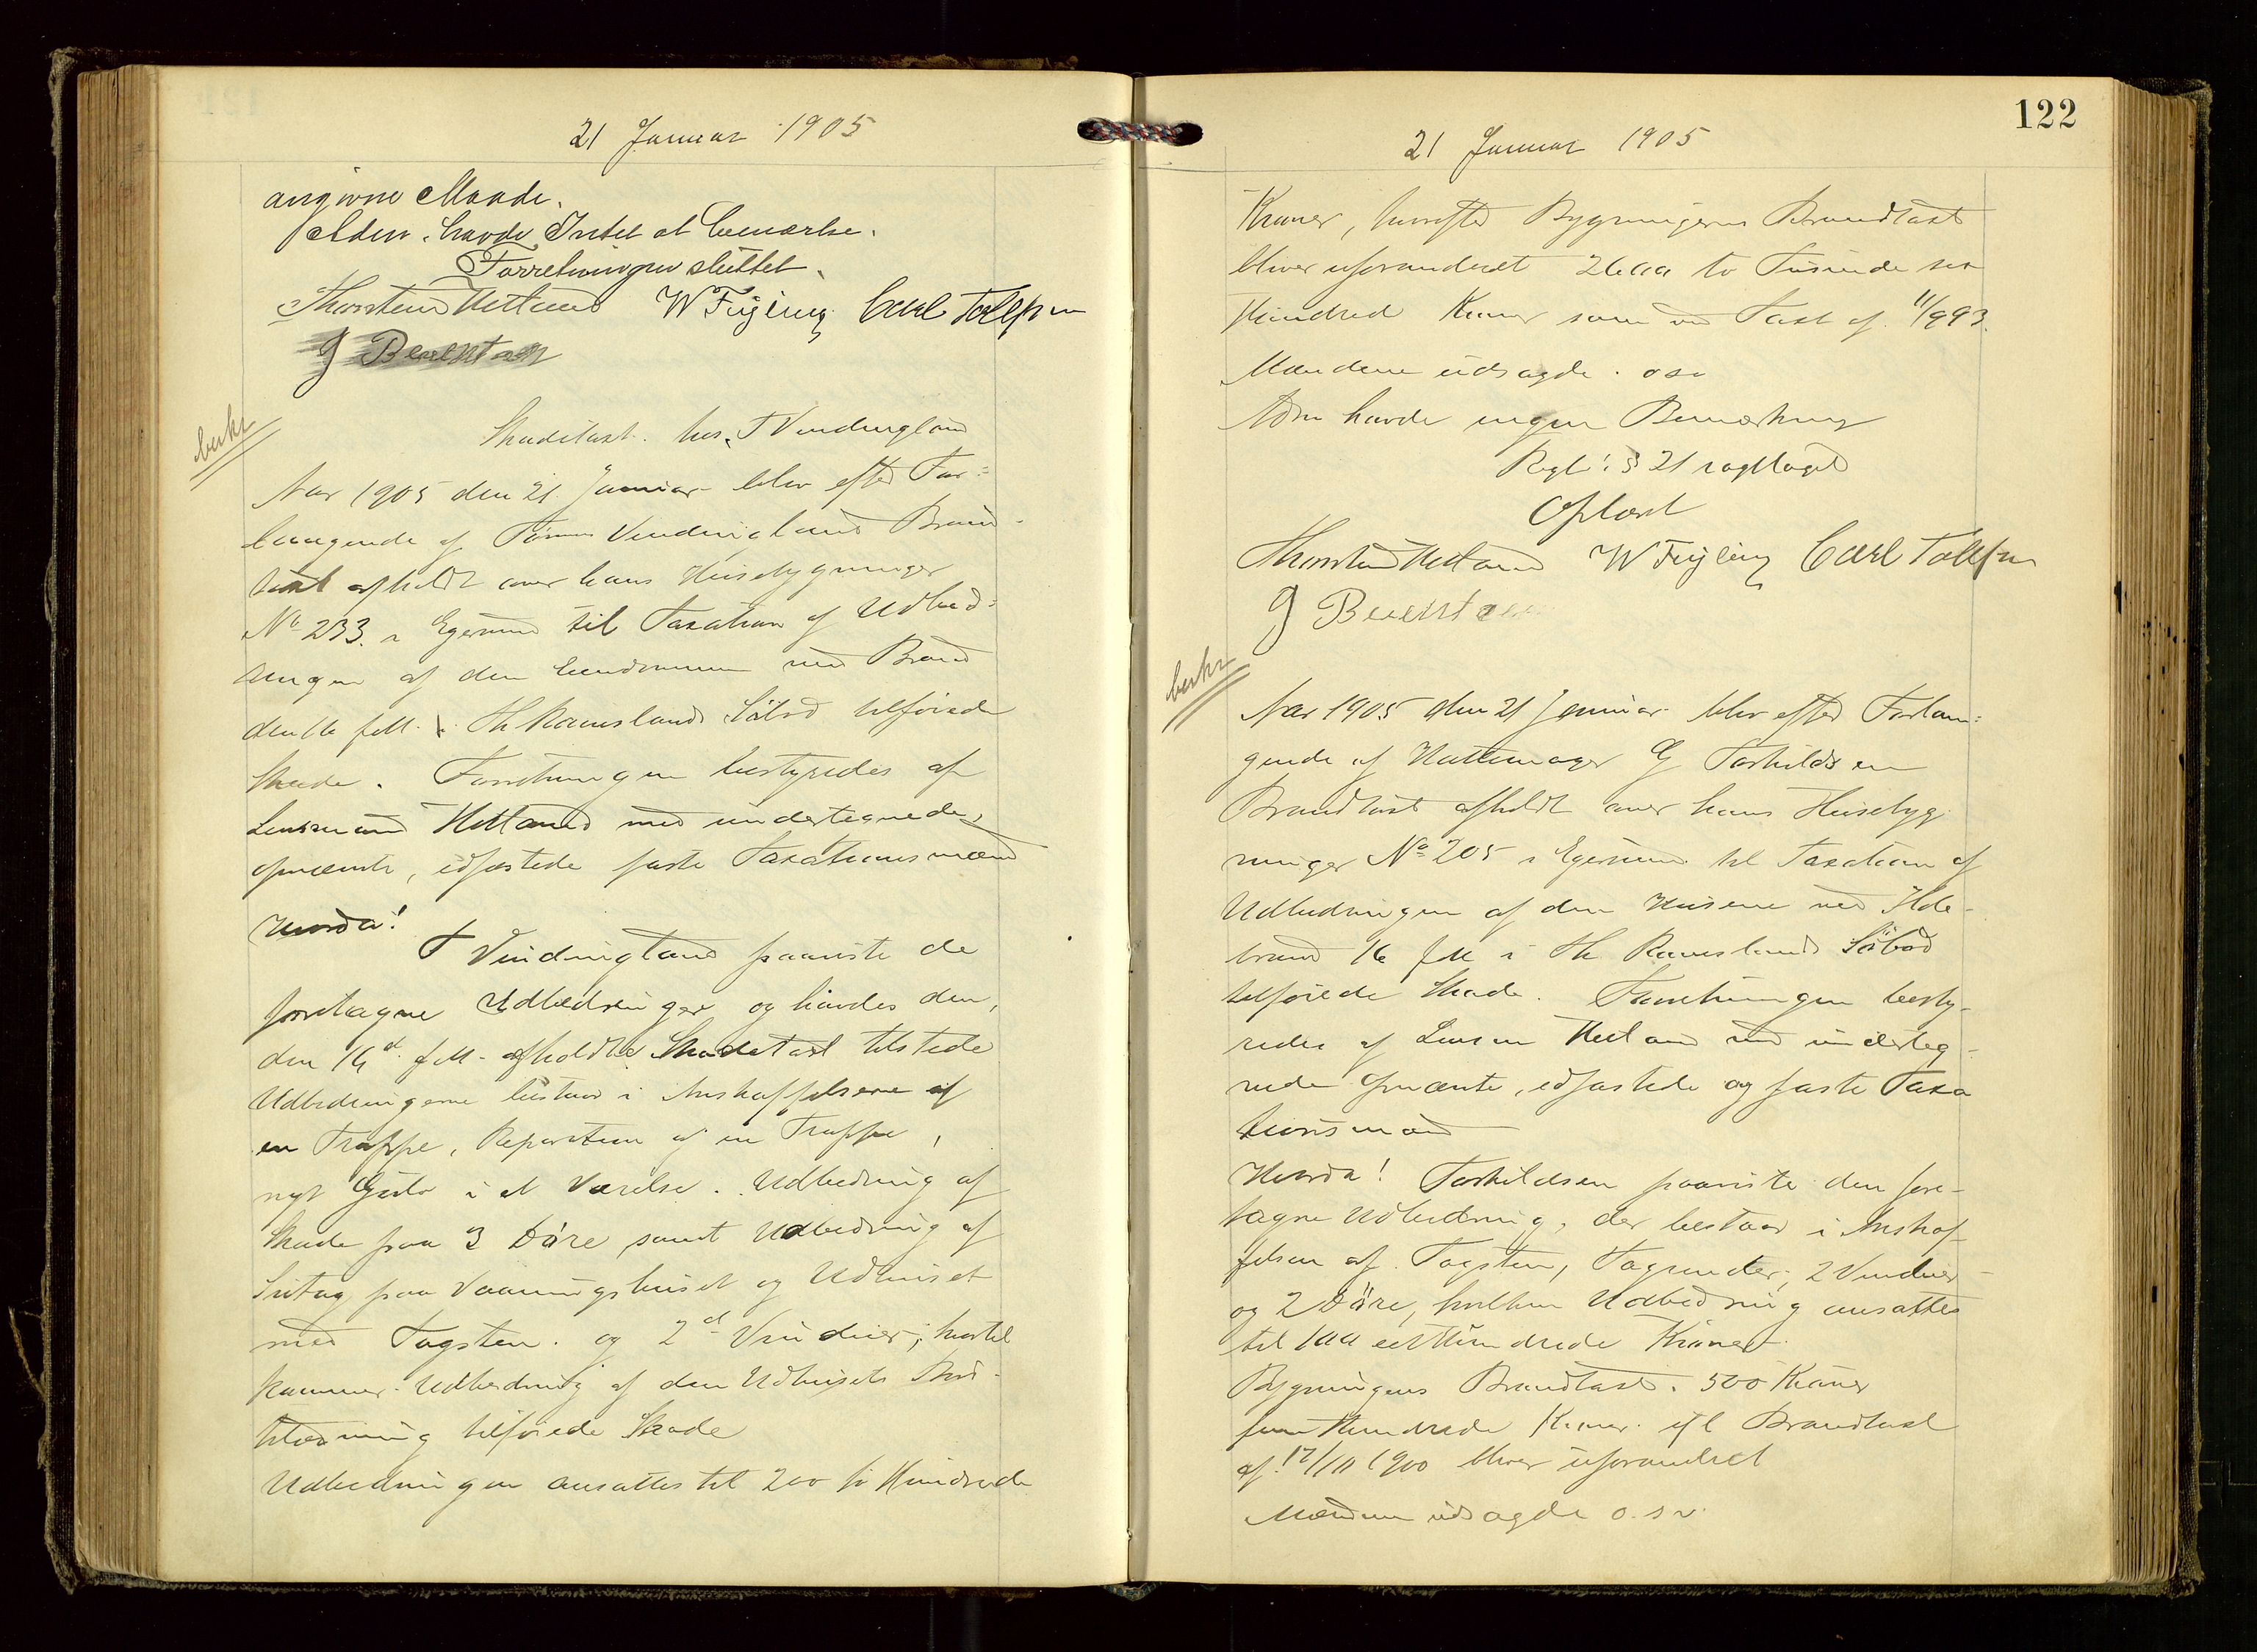 21 Januar 1905
angivne Maade.
Adm. havde Intet at bemærke.
Forretningen sluttet.
Thorsten Hetland W Feyling Carl Tollefsen
G Berentsen
bechr
Skadetaxt. hos T Vindringland
Aar 1905 den 21 Januar blev efter For=
langende af Tønnes Vindringland Brand-
taxt afholdt over hans Husebygninger
No 233. i Egersund til Taxation af Udbed=
ringen af den Eiendommen ved Brand
den 16 f.M. i Th Ramslands Söbod tilföiede
Skade. Forretningen bestyredes af
Lensmand Hetland med undertegnede,
opnævnte, edfæstede faste Taxationsmænd
Hvorda!
T Vindringland paaviste de
foretagne Udbedringer og havdes den,
den 16d f.M. afholdte Skadetaxt tilstede
Udbedringerne bestaar i Anskaffelserne af
en Trappe, Reparation af en Trappe,
nyt Gulv i et Værelse. Udbedring af
Skade paa 3 Döre samt Udbedring af
Sutag paa Vaaningshuset og Udhuset
med Tagsten. og 2d Vinduer; hvortil
kommer Udbedring af den Udhusets Bord-
klædning tilföiede Skade
Udbedringen ansattes til 200 to Hundrede
122
21 Januar 1905
Kroner, hvorefter Bygningernes Brandtaxt
bliver uforandret 2600 to Tusinde sex
Hundred Kroner som ved Taxt af 11/9 93.
Mændene udsagde. osv
Adm havde ingen Bemærkning
Regl: § 21 iagttaget
Oplæst
Thorsten Hetland W Feyling Carl Tollefsen
G Berentsen
bechr
Aar 1905 den 21 Januar blev efter Forlan=
gende af Hattemager G Torkildsen
Brandtaxt afholdt over hans Husebyg
ninger No 205 i Egersund til Taxation af
Udbedringen af den Husene ved Ilde-
brand 16 f.M. i Th Ramslands Söbod
tilföiede Skade. Forretningen besty-
redes af Lensm Hetland med underteg-
nede opnævnte, edfæstede og faste Taxa
tionsmænd
Hvorda! Torkildsen paaviste den fore-
tagne Udbedring, der bestaar i Anskaf-
felsen af Tagsten, Tagrender, 2 Vinduer
og 2 Döre, hvilken Udbedring ansattes
til 100 eet Hundrede Kroner
Bygningens Brandtaxt. 500 Kroner
fem Hundrede Kroner ifl Brandtaxt
af 17/10 1900 bliver uforandret
Mændene udsagde o.s.v.